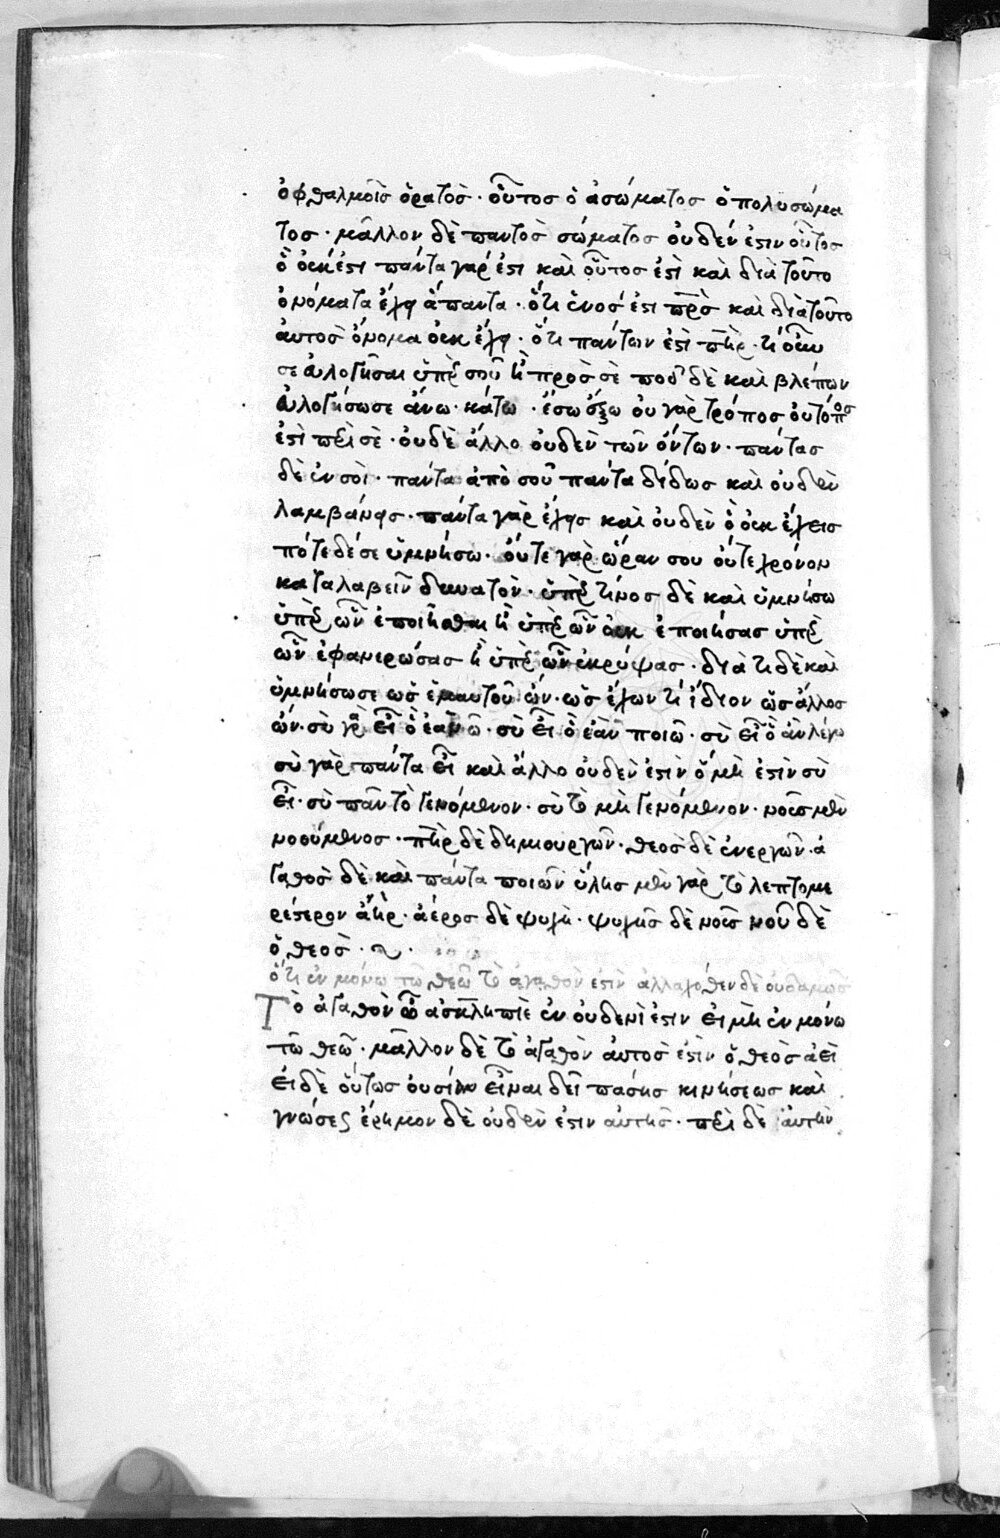 ὀφθαλμοῖς ὁρατὸς · οὗτος ὁ ἀσώματος ὁ πολυσώμα
τος · μᾶλλον δὲ παντὸς σώματος οὐδέν ἐστιν οὗτος
ὃ οὐκ ἔστι πάντα γάρ ἐστι καὶ οὗτος ἐστὶ καὶ διὰ τοῦτο
ὀνόματα ἔχει ἅπαντα · ὅτι ἑνός ἐστι πρς καὶ διὰ τοῦτο
αὐτὸς ὄνομα οὐκ ἔχει · ὅτι πάντων ἐστὶ πηρ · τί οὖν
σε εὐλογῆσαι ὑπὲρ σοῦ ἢ πρὸς σὲ ποῦ δὲ καὶ βλέπων
εὐλογήσω σε ἄνω · κάτω · ἔσω ἔξω οὐ γὰρ τρόπος οὐ τόπος
ἐστὶ περὶ σὲ · οὐδὲ ἄλλο οὐδὲν τῶν ὄντων · πάντας
δὲ ἐν σοὶ · πάντα ἀπὸ σοῦ πάντα δίδως καὶ οὐδὲν
λαμβάνεις · πάντα γὰρ ἔχεις καὶ οὐδὲν ὃ οὐκ ἔχεις
πότε δέ σε ὑμνήσω · οὔτε γὰρ ὥραν σου οὔτε χρόνον
καταλαβεῖν δυνατὸν · ὑπὲρ τίνος δὲ καὶ ὑμνήσω
ὑπὲρ ὧν ἐποίησας ἢ ὑπὲρ ὧν οὐκ ἐποίησας ὑπὲρ
ὧν ἐφανέρωσας ἢ ὑπὲρ ὧν ἔκρυψας · διὰ τί δὲ καὶ
ὑμνήσω σε ὡς ἐμαυτοῦ ὢν · ὡς ἔχων τί ἴδιον ὡς ἄλλος
ὢν · σὺ γὰρ εἶ ὃ ἐὰν ὦ · σὺ εἶ ὃ ἐὰν ποιῶ · σὺ εἶ ὃ ἂν λέγω
σὺ γὰρ πάντα εἶ καὶ ἄλλο οὐδὲν ἐστὶν ὃ μὴ ἐστὶν σὺ
εἶ · σὺ πᾶν τὸ γενόμενον · σὺ τὸ μὴ γενόμενον · νοῦς μὲν
νοούμενος · πηρ δὲ δημιουργῶν · θεὸς δὲ ἐνεργῶν · ἀ
γαθὸς δὲ καὶ πάντα ποιῶν ὕλης μὲν γὰρ τὸ λεπτομε
ρέστερον ἀὴρ · ἀέρος δὲ ψυχὴ · ψυχῆς δὲ νοῦς νοῦ δὲ
ὁ θεὸς · ~ ·
ὅτι ἐν μόνω τῶ θεῶ τὸ ἀγαθὸν ἐστὶν ἀλλαχόθεν δὲ οὐδαμῶς
Τὸ ἀγαθὸν ὦ ἀσκληπιὲ ἐν οὐδενὶ ἐστιν εἰ μὴ ἐν μόνω
τῶ θεῶ · μᾶλλον δὲ τὸ ἀγαθὸν αὐτὸς ἐστὶν ὁ θεὸς ἀεὶ
εἰ δὲ οὕτως οὐσίαν εἶναι δεῖ πάσης κινήσεως καὶ
γνώσες ἔρημον δὲ οὐδὲν ἐστιν αὐτῆς · περὶ δὲ αὐτὴν